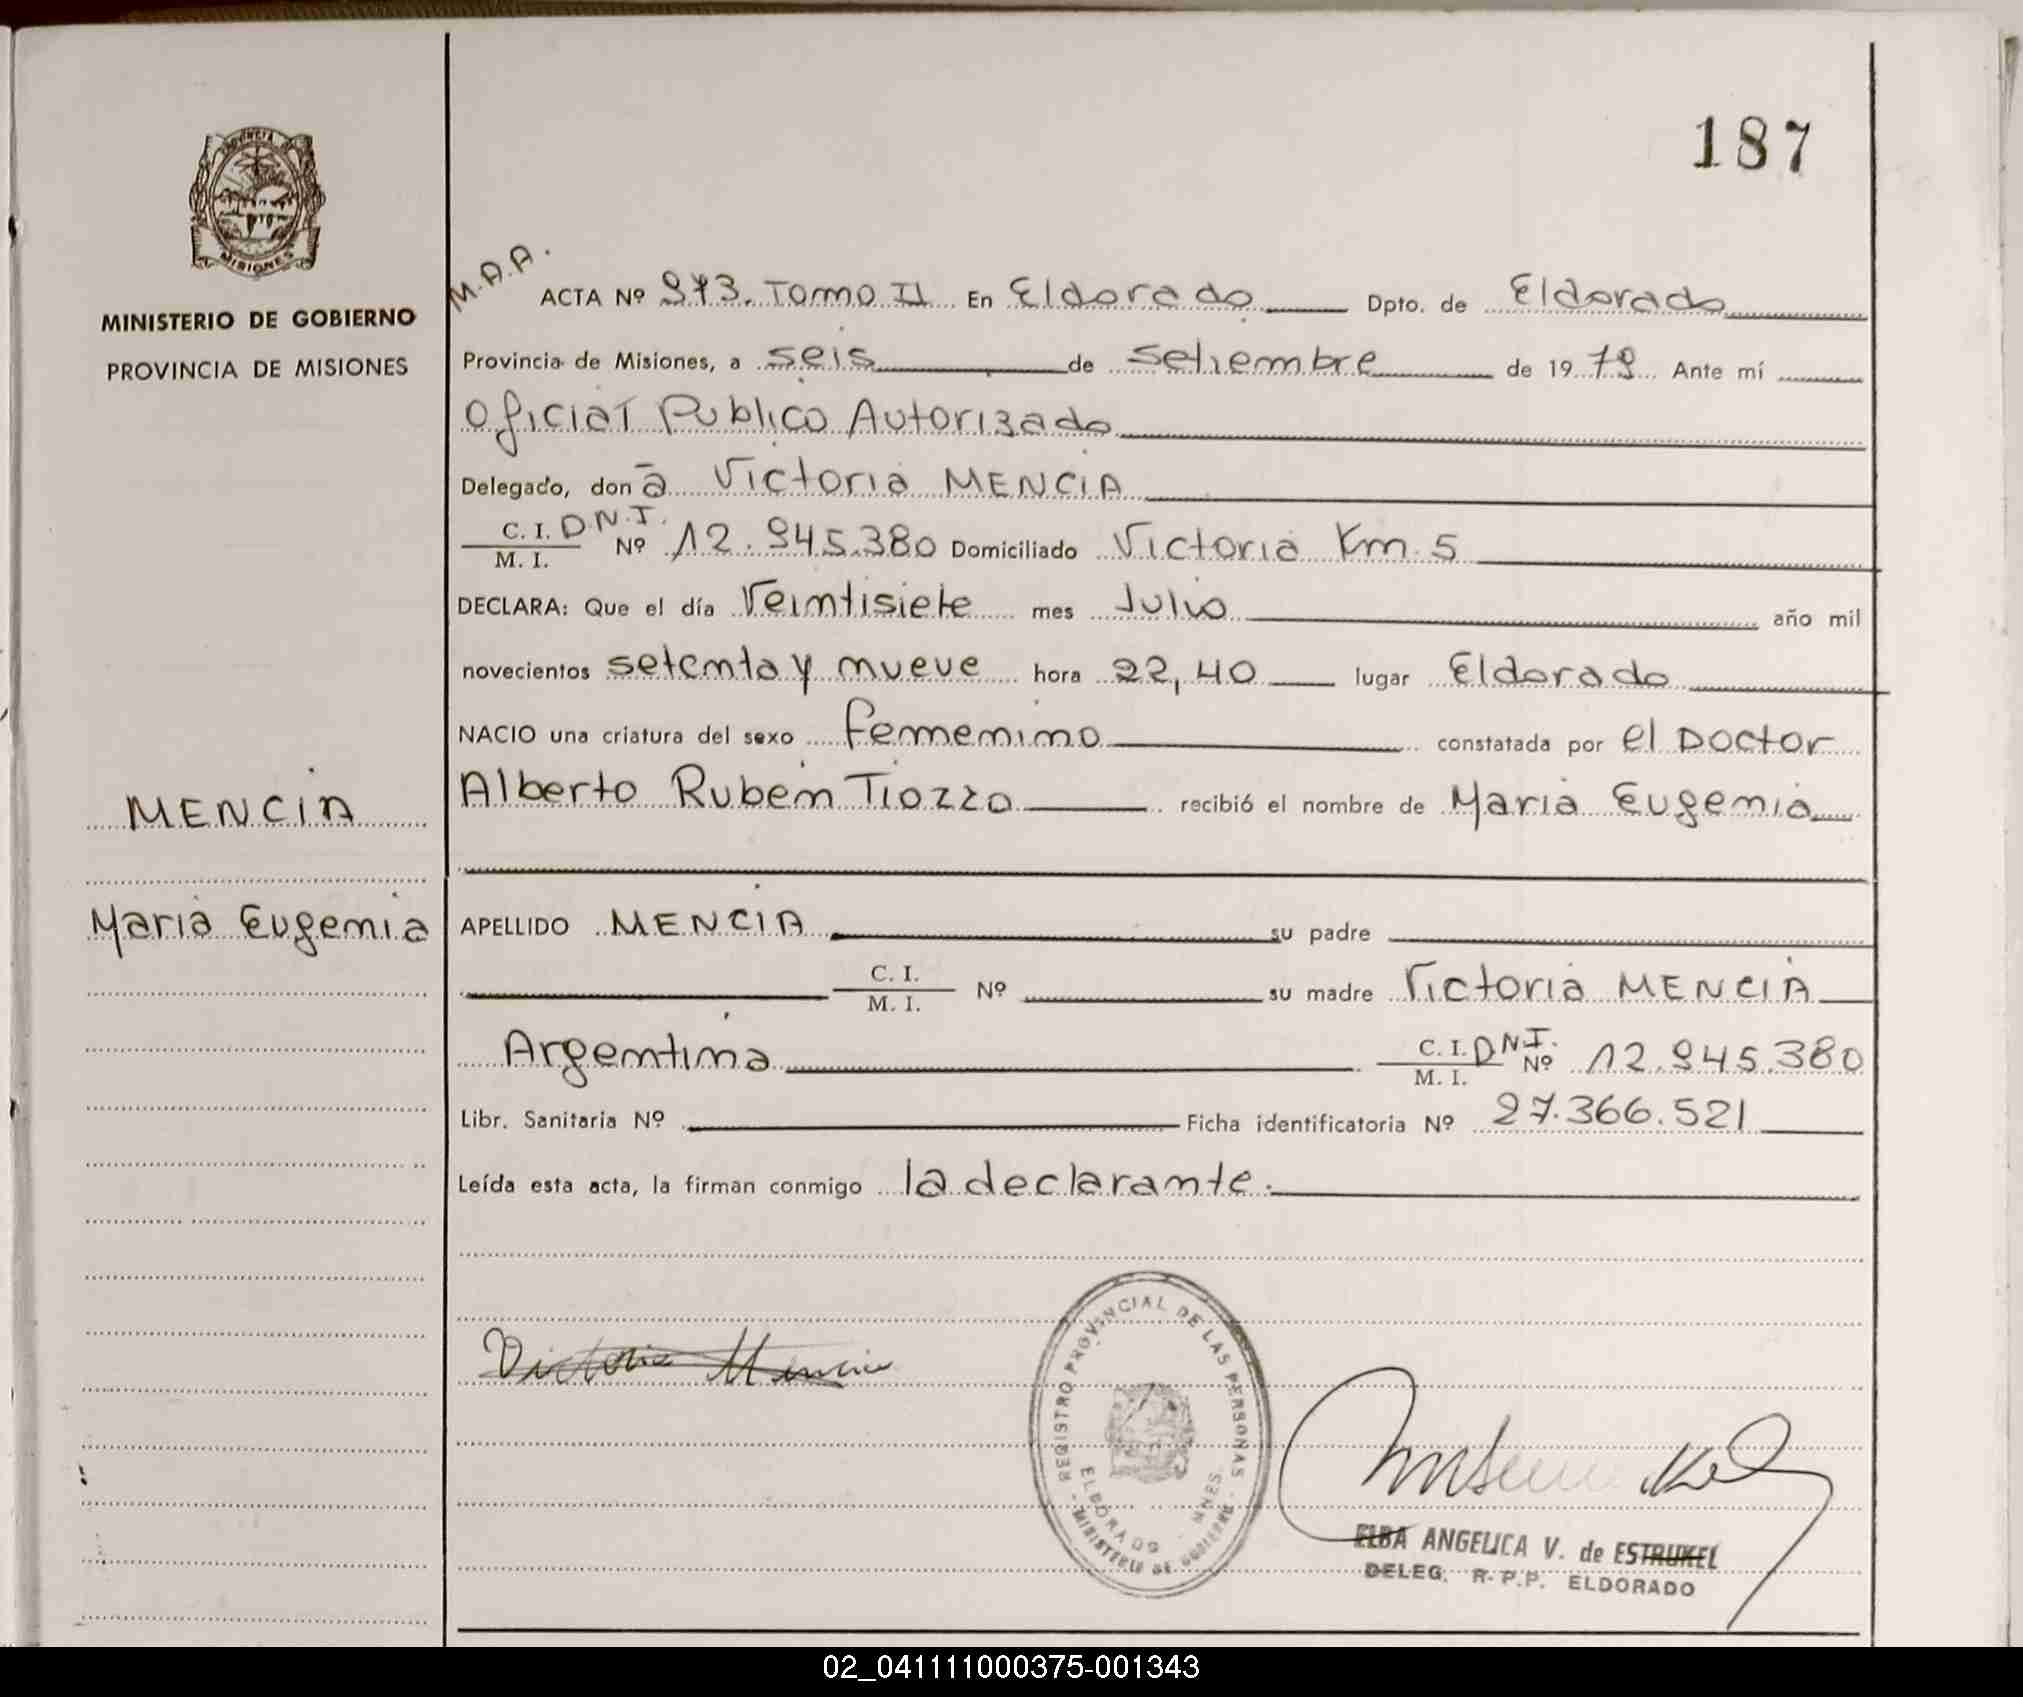 187
PROVINCIA
MISIONES
MINISTERIO DE GOBIERNO
PROVINCIA DE MISIONES
M.A.A.
ACTA Nº 973. Tomo II En Eldorado Dpto. de Eldorado
Provincia de Misiones, a seis de setiembre de 1979 Ante mí
Oficial Publico Autorizado
Delegado, don ā Victoria MENCIA
C. I. D.N.I. Nº 12.945.380 Domiciliado Victoria Km. 5
M. I.
DECLARA: Que el día Veintisiete mes Julio año mil
novecientos setenta y nueve hora 22,40 lugar Eldorado
NACIO una criatura del sexo femenino constatada por el Doctor
Alberto Rubén Tiozzo recibió el nombre de María Eugenia
MENCIA
María Eugenia
APELLIDO MENCIA su padre
C. I.
M. I. Nº su madre Victoria MENCIA
Argentina C. I. D.N.I. Nº 12.945.380
M. I.
Libr. Sanitaria Nº Ficha identificatoria Nº 27.366.521
Leída esta acta, la firman conmigo la declarante.
Victoria Mencia
REGISTRO PROVINCIAL DE LAS PERSONAS
ELDORADO - MNES.
MINISTERIO DE GOBIERNO
ELBA ANGELICA V. de ESTRUKEL
DELEG. R.P.P. ELDORADO
02_041111000375-001343